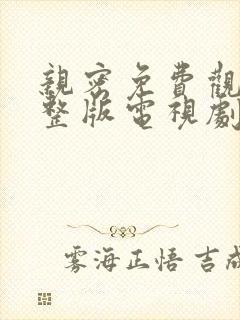 親密免費觀
整版電視劇
雾海正悟 吉成